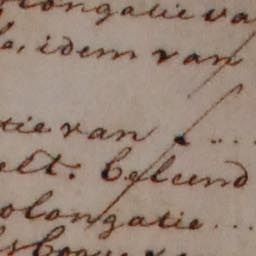 longatie va
la, idem van
tie van
elt. beleend
olongatie ....